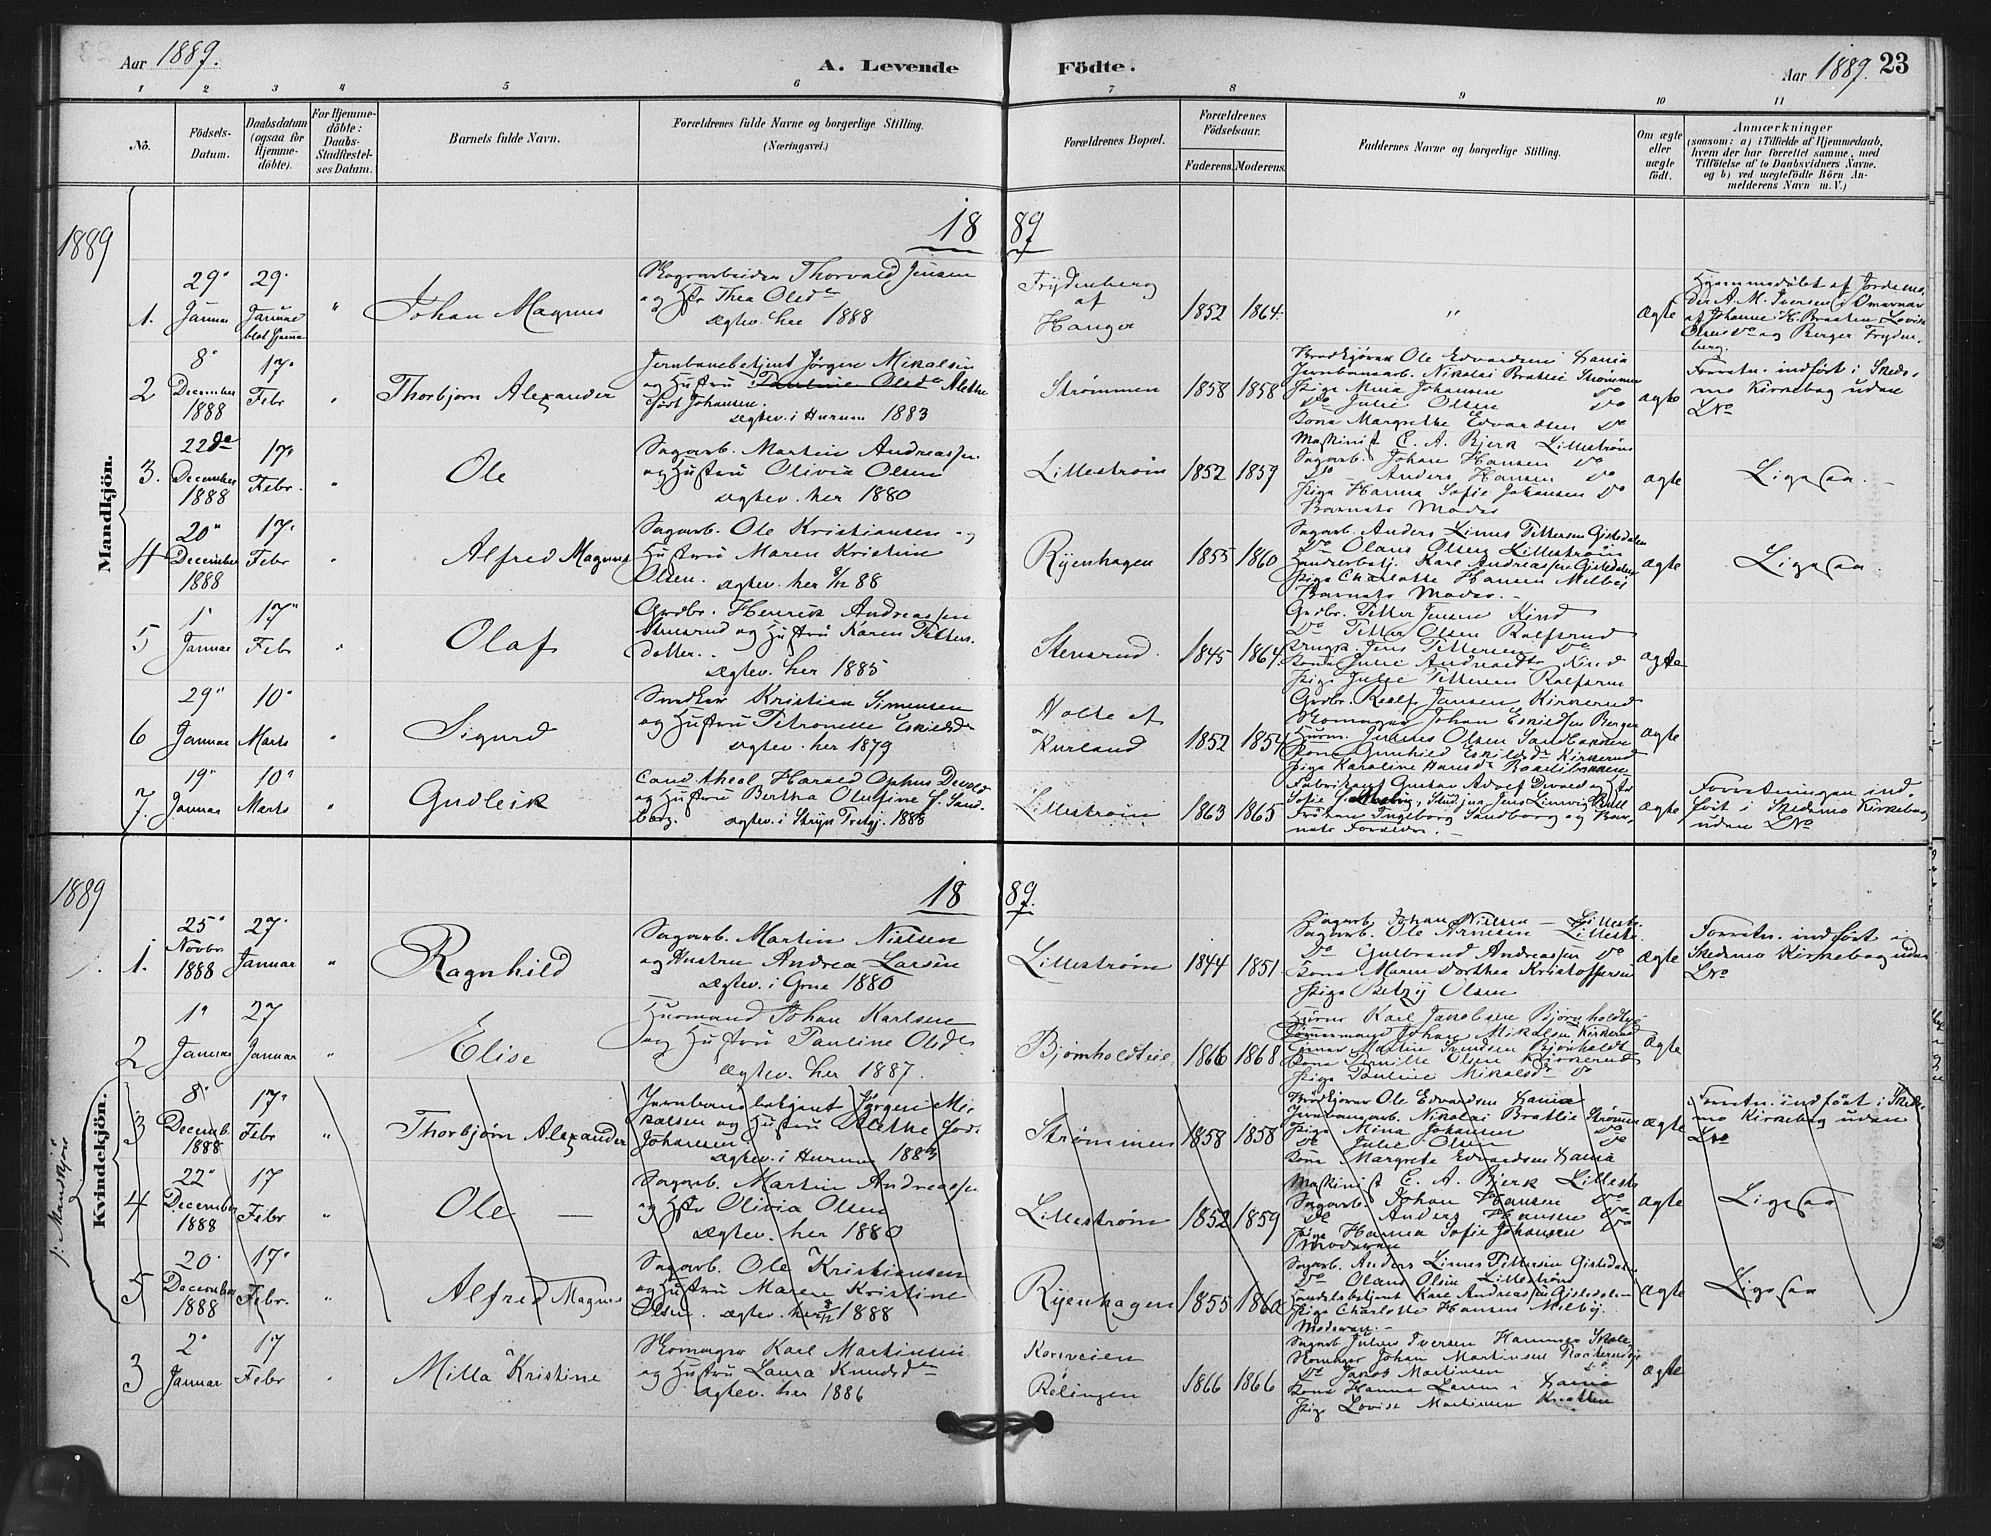 Aar 1889.
A. Levende Födte.
Aar 1889. 23
1 2 3 4 5 6 7 8 9 10 11
No.
Födsels-
Datum.
Daabsdatum
(ogsaa for
Hjemme-
döbte).
For Hjemme-
döbte:
Daabs-
Stadfæstel-
ses Datum.
Barnets fulde Navn.
Forældrenes fulde Navne og borgerlige Stilling.
(Næringsvei.)
Forældrenes Bopæl.
Forældrenes
Födselsaar.
Faderens. Moderens.
Faddernes Navne og borgerlige Stilling.
Om ægte
eller
uægte
födt.
Anmærkninger
(saasom: a) i Tilfælde af Hjemmedaab,
hvem der har forrettet samme, med
Tilföielse af to Daabsvidners Navne.
og b) ved uægtefödte Börn An-
melderens Navn m. V.)
Mandkjön.
1889
18 89
1.
29
Januar
29.
Januar
"
Johan Magnus
Thorvald Jensen
og Thea Olsd
Ægtev. her 1888
Frydenberg
af
Hanger
1852 1864.
"
ægte
Hjemmedøbt af Jordemo-
der A. M. Iversen
af Johanne H. Braaten, Lovise
Olsen og Berger Fryden-
berg.
2
8
December
1888
17
Febr
"
Thorbjørn Alexander
Jernbanebetjent Jørgen Mikalsen
og Hustru Pauline Olsd Alethe
født Johansen.
Ægtev. i Hurum 1883
Strømmen
1858 1858
Brødkjører Ole Edvardsen Sania
Jernbanearb. Nikolai Brathie Strømmen
Pige Mina Johansen Do
Do Julie Olsen Do
Kone Margrethe Edvardsen Do
ægte
Forretn. indført i Skeds-
mo Kirkebog uden
LNo
3.
22de
December
1888
17
Febr.
"
Ole
Sagarb. Martin Andreassen
og Hustru Olivia Olsen
Ægtev. her 1880
Lillestrøm
1852 1859
Maskinist E. A. Bjerk Lillestrøm
Sagarb. Johan Hansen Do
Do Anders Hansen Do
Pige Hanna Sofie Johansen Do
Barnets Moder
ægte
Ligesaa.
4
20
December
1888
17
Febr
"
Alfred Magnus
Sagarb. Ole Kristiansen og
Hustru Maren Kristine
Olsen. Ægtev. her 9/12 88
Ryenhagen
1855 1860
Sagarb. Anders Linus Pettersen Gistedalen
Do Olaus Olsen Lillestrøm
Handelsbetj. Karl Andreassen Gistedalen
Pige Charlotte Hansen Melby
Barnets Moder.
ægte
Ligesaa.
5
1
Januar
17
Febr
"
Olaf
Grdbr. Henrik Andreassen
Stensrud og Hustru Karen Petters-
datter.
Ægtev. her 1885
Stensrud.
1845 1864.
Grdbr. Petter Jensen Kind
Do Petter Olsen Ralfsrud
Ungk. Jens Pettersen Do
Kone Julie Andreasdtr Kind
Pige Julie Pettersen Ralfsrud
ægte
6
29
Januar
10
Marts
"
Sigurd
Snedker Kristian Simensen
og Hustru Petronelle Eskildsd
Ægtev. her 1879
Holte af
Kurland
1852 1854
Grdbr. Roalf Jansen Kirkerud
Skomager Johan Eskildsen Berger
Husm. Julius Olsen Sandbakken
Kone Gunhild Eskildsdr Kirkerud
Pige Karoline Hansd
ægte
7.
19
Januar
10
Marts
"
Gudleik
Cand. theol. Harald Ophus Devold
og Hustru Bertha Olufine f. Sand-
borg. Ægtev. i Stryn Prstgj. 1888
Lillestrøm
1863 1865
Fabrikant Gustav Adolf Devold og Fr
Sofie f. Stud. jur Jens Ludvig
Frøken Ingeborg Sandborg og Bar-
nets Forældre.
ægte
Forretningen ind-
ført i Skedsmo Kirkebog
uden LNo
Kvindekjön.
1889
18 89.
1.
25
Novbr
1888
27.
Januar
"
Ragnhild
Sagarb. Martin Nielsen
og Hustru Andrea Larsen
Ægtev. i Grue 1880
Lillestrøm
1844 1851
Sagarb. Johan Nielsen – Lillestr.
Sagarb. Ole Arnesen – Lillestr.
Do Gulbrand Andreassen Do
Kone Maren Dorthea Kristoffersen
Pige Betzy Olsen
ægte
Forretn. indført i
Skedsmo Kirkebog uden
LNo
2
1
Januar
27
Januar
"
Elise
Husmand Johan Karlsen
og Hustru Pauline Olsd
Ægtev. her 1887.
Bjørnholdteie
1866 1868
Karl Jacobsen Bjørnholdtei
Tømmermand Johan Mikalsen Kirkerud
Martin Knudsen Bjørnholdt
Kone Pernille Olsen Kirkerud
Pige Pauline Mikalsdr Do
ægte
f: Mandkjøn
3
8
Decemb.
1888
17
Febr
"
Thorbjørn Alexander
Jernbanebetjent Jørgen Mi-
kalsen og Hustru Alethe født
Johansen.
Ægtev. i Hurum 1883
Strømmen
1858 1858
Brødkjører Ole Edvardsen Sania
Jernbanearb. Nikolai Brathie Strømmen
Pige Mina Johansen Do
Do Julie Olsen Do
Kone Margrete Edvardsen Sania
ægte
Forretn. indført i Skeds-
mo Kirkebog uden
LNo
4
22
December
1888
17
Febr
"
Ole –
Sagarb. Martin Andreassen
og Hstr Olivia Olsen
Ægtev. her 1880
Lillestrøm
1852 1859
Maskinist E. A. Bjerk Lillestr
Sagarb. Johan Hansen Do
Do Anders Hansen Do
Pige Hanna Sofie Johansen Do
Moderen
ægte
Ligesaa
5
20
December
1888
17
Febr.
"
Alfred Magnus
Sagarb. Ole Kristiansen
og Hustru Maren Kristine
Olsen. Ægtev. her 9/12 1888
Ryenhagen
1855 1860
Sagarb. Anders Linus Pettersen Gistedalen
Do Olaus Olsen Lillestrøm
Handelsbetjent Karl Andreassen Gistedalen
Pige Charlotte Hansen Melby.
Moderen.
ægte
Ligesaa
3
2
Januar
17
Febr
"
Milla Kristine
Skomager Karl Martinsen
og Hustru Laura Knudsd
Ægtev. her 1886
Korsveien
Rælingen
1866 1866
Sagarb Julius Iversen Hammer
Skomager Johan Martinsen
Do Jakob Martinsen
Kone Hanna Larsen i Sania
Pige Lovise Martinsen Knatten
ægte